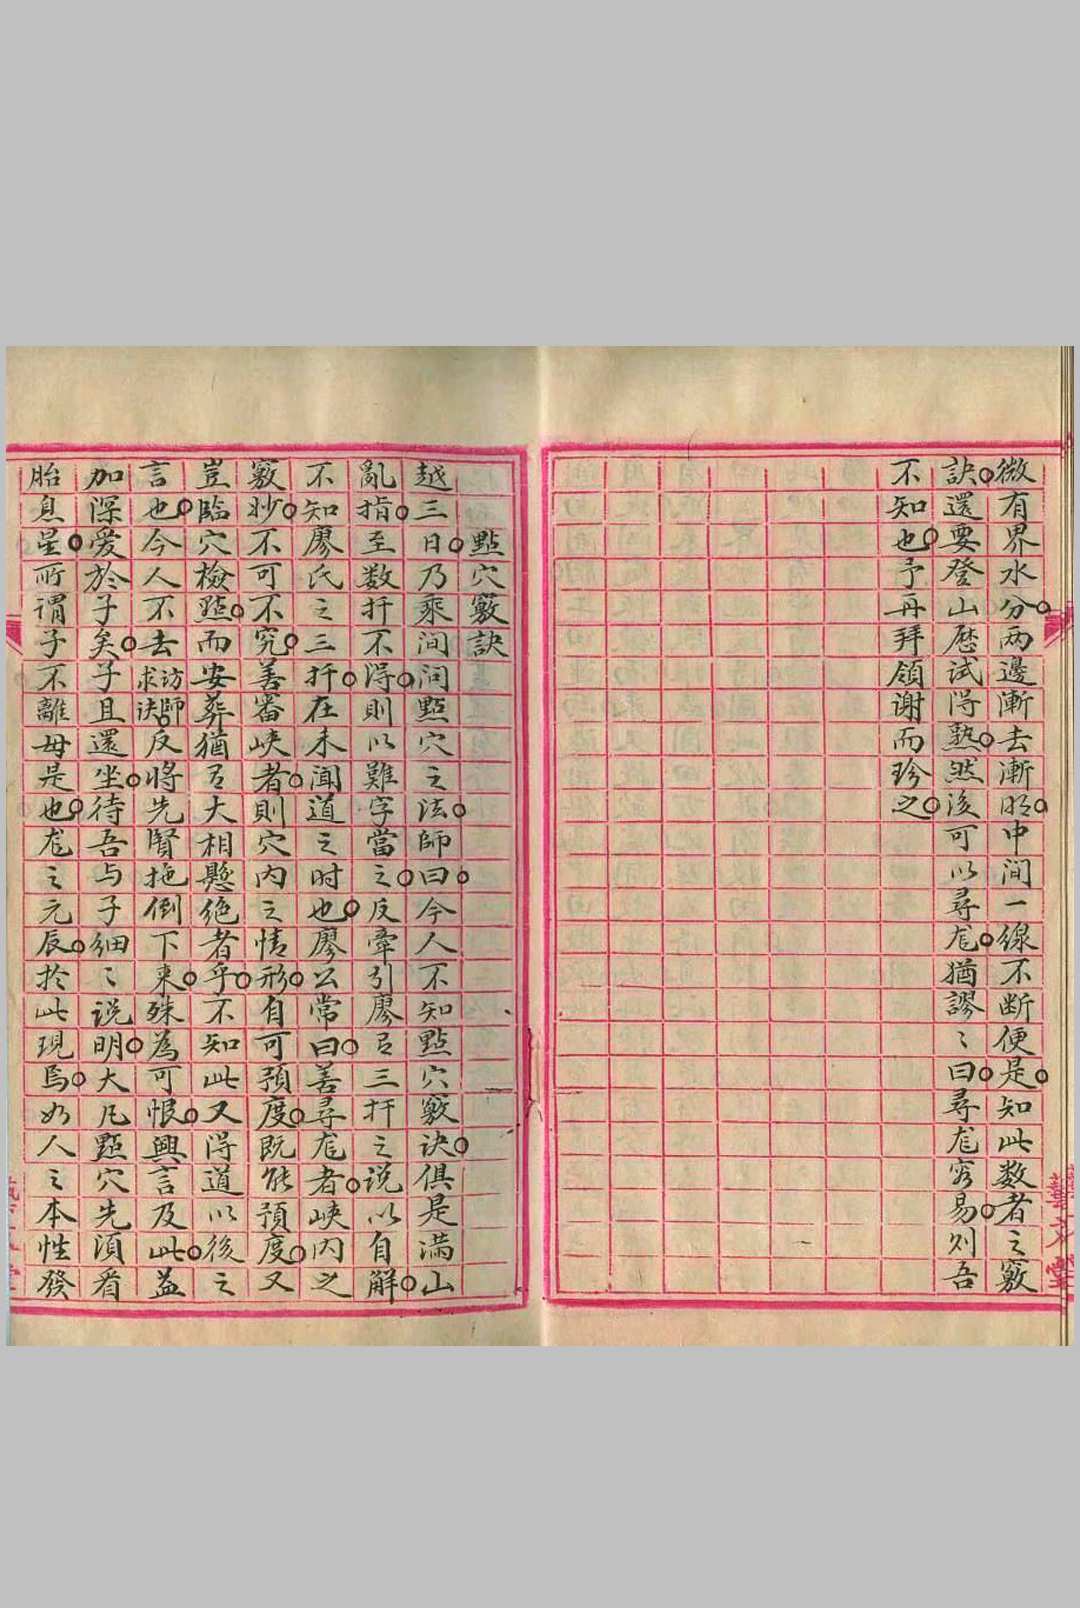 微有界水分。两邊漸去漸明。中间一線不断便是。知此数者之竅
訣。還要登山歷试得熟。然後可以尋龙。猶謬〻曰。尋龙容易。则吾
不知也。予再拜領谢而珍之。
點穴竅訣
越三日。乃乘间问點穴之法。師曰。今人不知點穴竅诀。俱是满山
亂指。至数扦不得。则以難字當之。反牽引廖公三扞之说以自解。
不知廖氏之三扞。在未闻道之时也。廖公常曰。善尋龙者。峡内之
竅妙。不可不究。善審峡者。则穴内之情形。自可預度。既能預度。又
豈臨穴檢點。而安葬猶有大相懸绝者乎。不知此又得道以後之
言也。今人不去访師求诀。反将先賢拖倒下来。殊為可恨。興言及此。益
加深爱於子矣。子且還坐。待吾与子细〻说明。大凡點穴先須看
胎息星。所谓子不離母是也。龙之元辰。於此現焉。如人之本性發
藝文堂